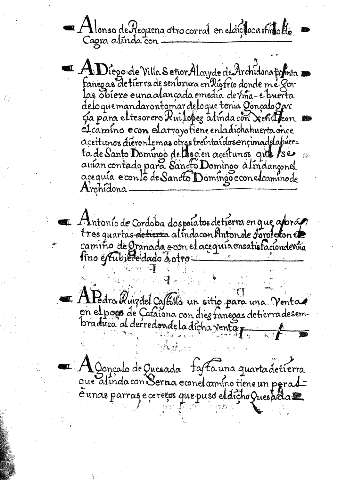 Alonso de Requena otro corral en el dicho castillo de
Cagra alinda con
A Diego de Villa Señor Alcayde de Archidona
fanegas de tierra de senbrura en Riofrio donde me
las obiere e una alançada e media de viña e huerta
de lo que mandaron tomar de lo que tonia Gonçalo Gar
çia para el tesorero Rui Lopez alinda con e con
el camino e con el arroyo tiene en la dicha huerta onçe
açeitunos dieronle mas otros treinta dos ençima de la huer
ta de Santo Domingo de açeitunos que se
auian contado para Santo Domingo alindan con el
açequia e con lo de Santo Domingo e con el camino de
Archidona
Antonio de Cordoba dos pedaços de tierra en que abra
tres quartas de tierra alinda con Anton de e con el
camino de Granada e con el açequia en satisfaçion de
sino estubiere dado a otro
A Pedro Ruiz del Castillo un sitio para una venta
en el poço de Cataiona con diez fanegas de tierra de sen
bradura al derredor de la dicha venta
A Gonçalo de Quesada fasta una quarta de tierra
que alinda con Serna e con el camino tiene un peral
e unas parras e çereços que puso el dicho Quesada